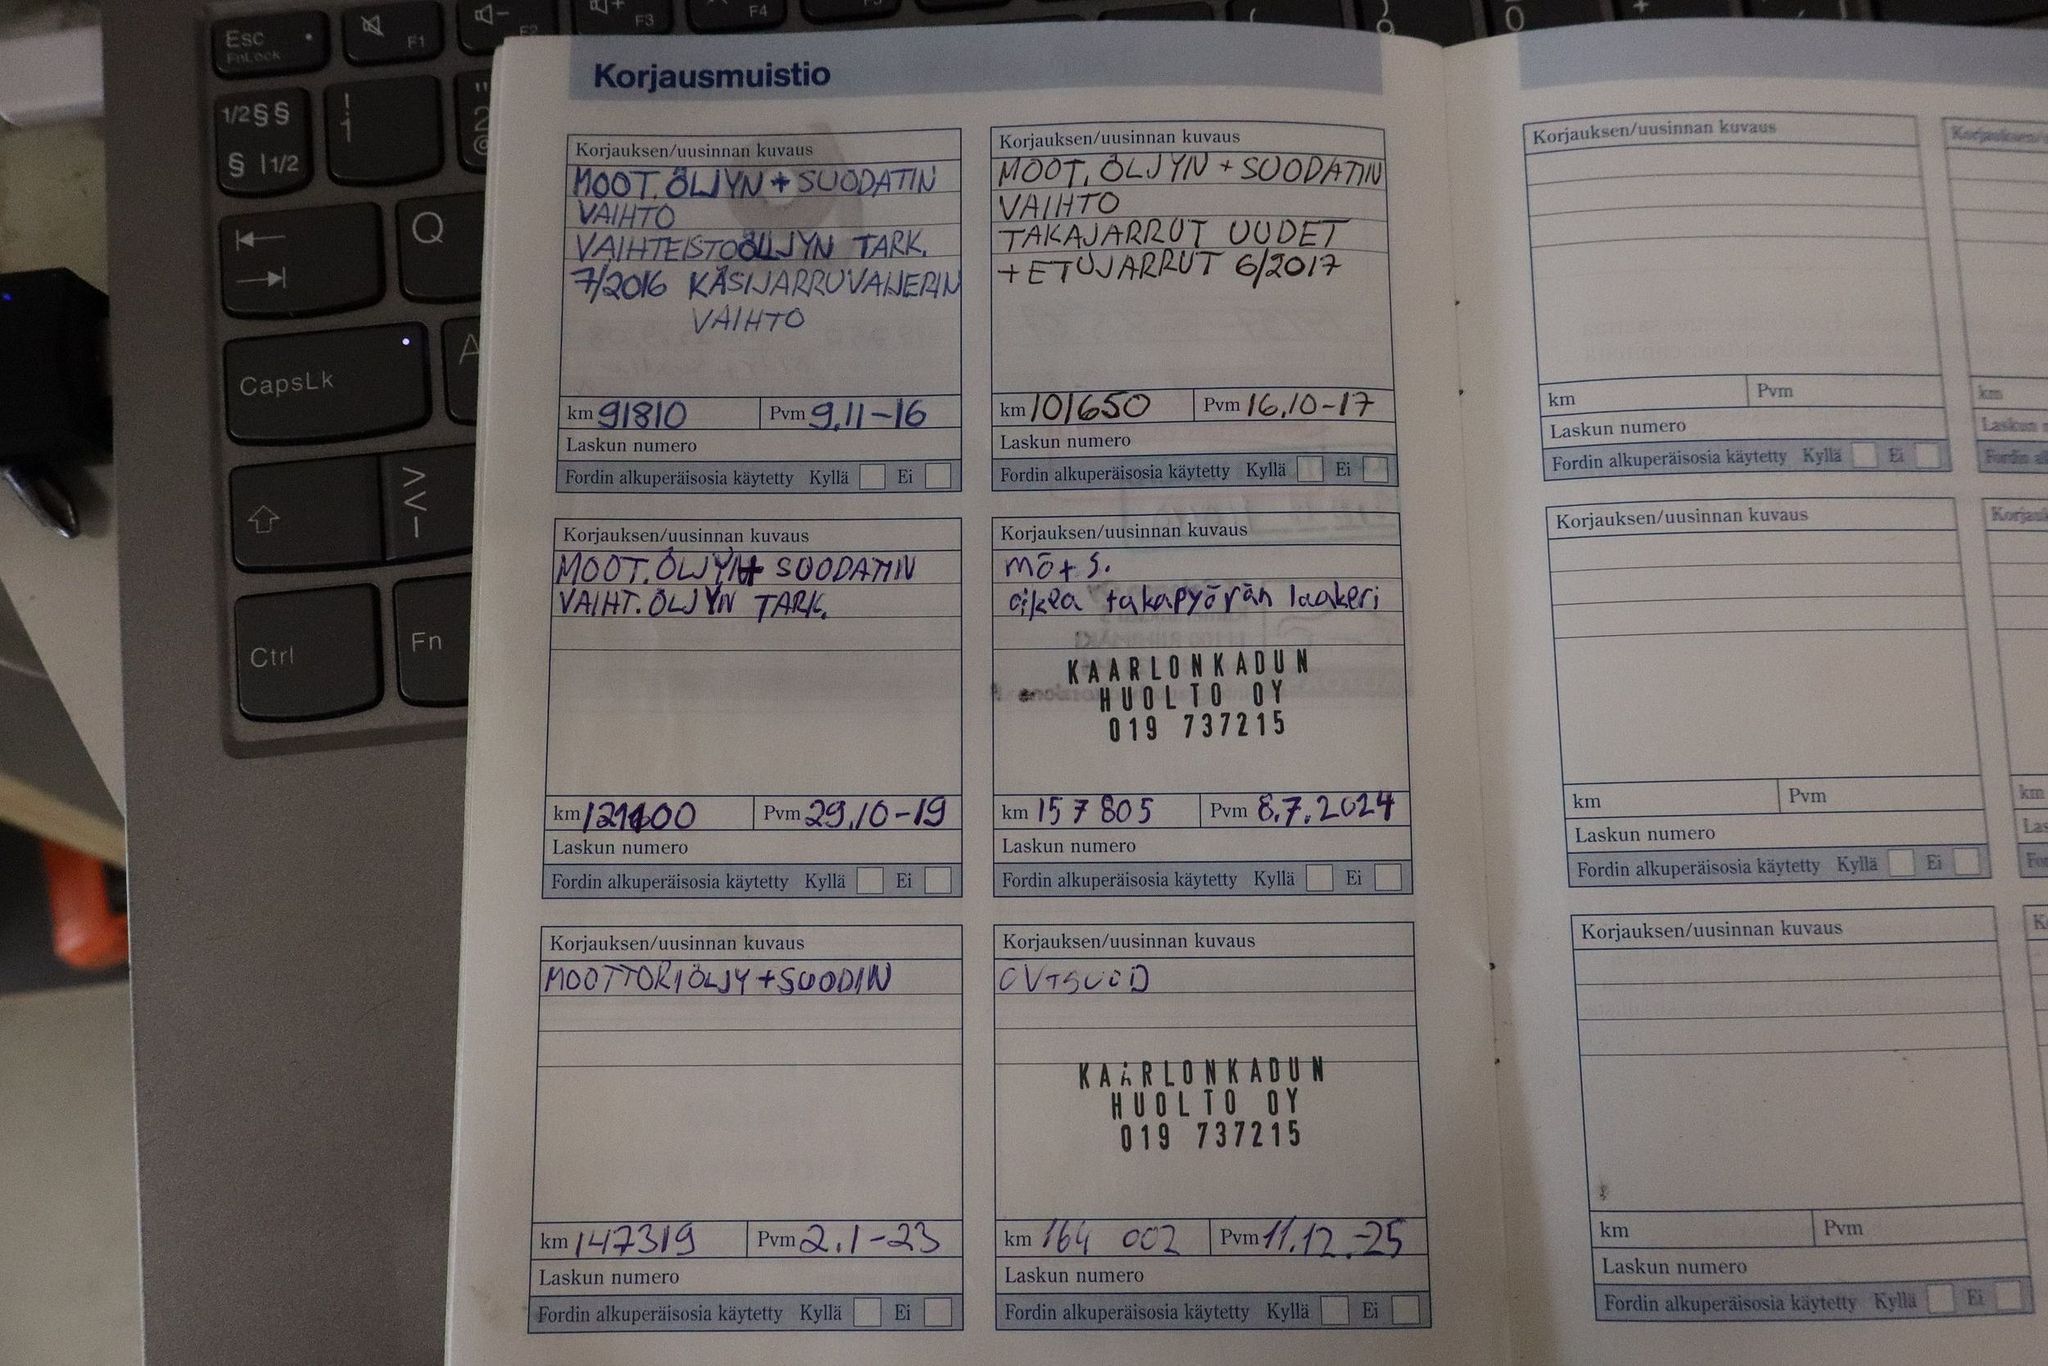 Esc
FnLock
F1
F2
F3
F4
1/2 § §
§ | 1/2
!
1
"
2
@
Q
CapsLk
A
>
<
|
Ctrl
Fn
0
+
Korjausmuistio
Korjauksen/uusinnan kuvaus
MOOT.ÖLJYN + SUODATIN
VAIHTO
VAIHTEISTOÖLJYN TARK.
7/2016 KÄSIJARRUVAIJERIN
VAIHTO
km 91810 Pvm 9.11-16
Laskun numero
Fordin alkuperäisosia käytetty Kyllä Ei
Korjauksen/uusinnan kuvaus
MOOT. ÖLJYN + SUODATIN
VAIHTO
TAKAJARRUT UUDET
+ ETUJARRUT 6/2017
km 101650 Pvm 16.10-17
Laskun numero
Fordin alkuperäisosia käytetty Kyllä Ei
Korjauksen/uusinnan kuvaus
MOOT.ÖLJYN+ SUODATIN
VAIHT.ÖLJYN TARK.
km Pvm 29.10-19
Laskun numero
Fordin alkuperäisosia käytetty Kyllä Ei
Korjauksen/uusinnan kuvaus
mö+ s.
oikea takapyörän laakeri
KAARLONKADUN
HUOLTO OY
019 737215
km 157 805 Pvm 8.7.2024
Laskun numero
Fordin alkuperäisosia käytetty Kyllä Ei
Korjauksen/uusinnan kuvaus
MOOTTORIÖLJY + SUODIN
km 147319 Pvm 2.1-23
Laskun numero
Fordin alkuperäisosia käytetty Kyllä Ei
Korjauksen/uusinnan kuvaus
ÖV+SUOD
KAARLONKADUN
HUOLTO OY
019 737215
km 164 002 Pvm 11.12.-25
Laskun numero
Fordin alkuperäisosia käytetty Kyllä Ei
Korjauksen/uusinnan kuvaus
km Pvm
Laskun numero
Fordin alkuperäisosia käytetty Kyllä Ei
Korjauksen/uusinnan kuvaus
km Pvm
Laskun numero
Fordin alkuperäisosia käytetty Kyllä Ei
Korjauksen/uusinnan kuvaus
km Pvm
Laskun numero
Fordin alkuperäisosia käytetty Kyllä Ei
km
km